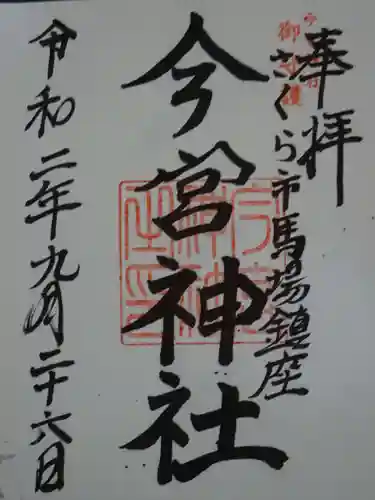 奉拝
さくら市馬場鎮座
今宮神社
令和二年九月二十六日